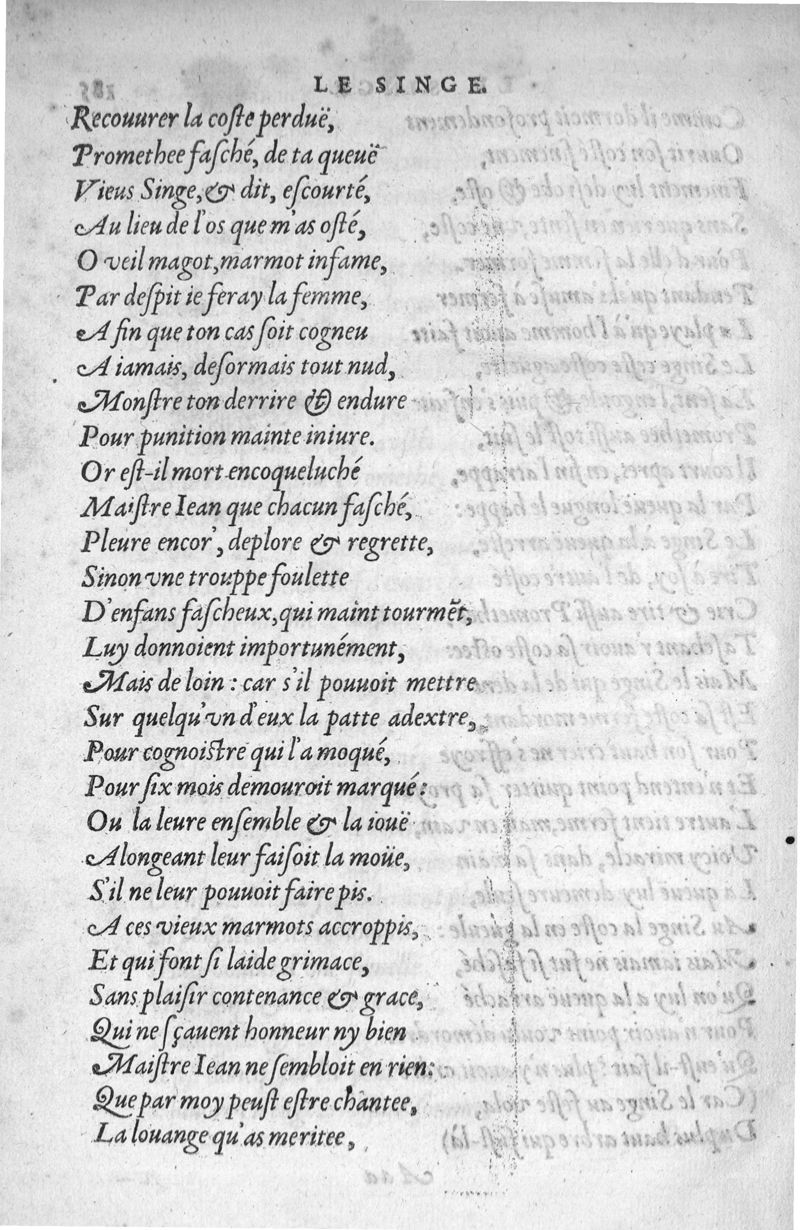 LE SINGE.
Recouurer la coſte perduë,
Promethee faſché, de ta queuë
Vieus Singe, & dit, eſcourté,
Au lieu de l'os que m'as oſté,
O veil magot, marmot infame,
Par deſpit ie feray la femme,
Afin que ton cas ſoit cogneu
A iamais, deſormais tout nud,
Monſtre ton derrire & endure
Pour punition mainte iniure.
Or eſt-il mort encoqueluché
Maiſtre Iean que chacun faſché,
Pleure encor', deplore & regrette,
Sinon vne trouppe foulette
D'enfans faſcheux, qui maint tourmẽt,
Luy donnoient importunément,
Mais de loin : car s'il pouuoit mettre
Sur quelqu'vn d'eux la patte adextre,
Pour cognoiſtre qui l'a moqué,
Pour ſix mois demouroit marqué:
Ou la leure enſemble & la iouë
Alongeant leur faiſoit la moüe,
S'il ne leur pouuoit faire pis.
A ces vieux marmots accroppis,
Et qui font ſi laide grimace,
Sans plaiſir contenance & grace,
Qui ne ſçauent honneur ny bien
Maiſtre Iean ne ſembloit en rien:
Que par moy peuſt eſtre chantee,
La louange qu'as meritee,